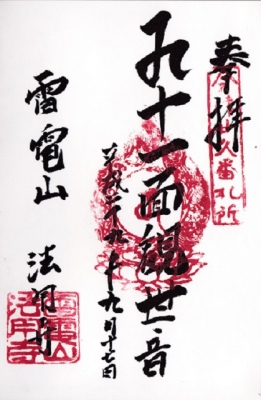 奉拝
番札所
十一面観世音
平成二九年九月十七日
雷電山 法用寺
雷電山
法用寺